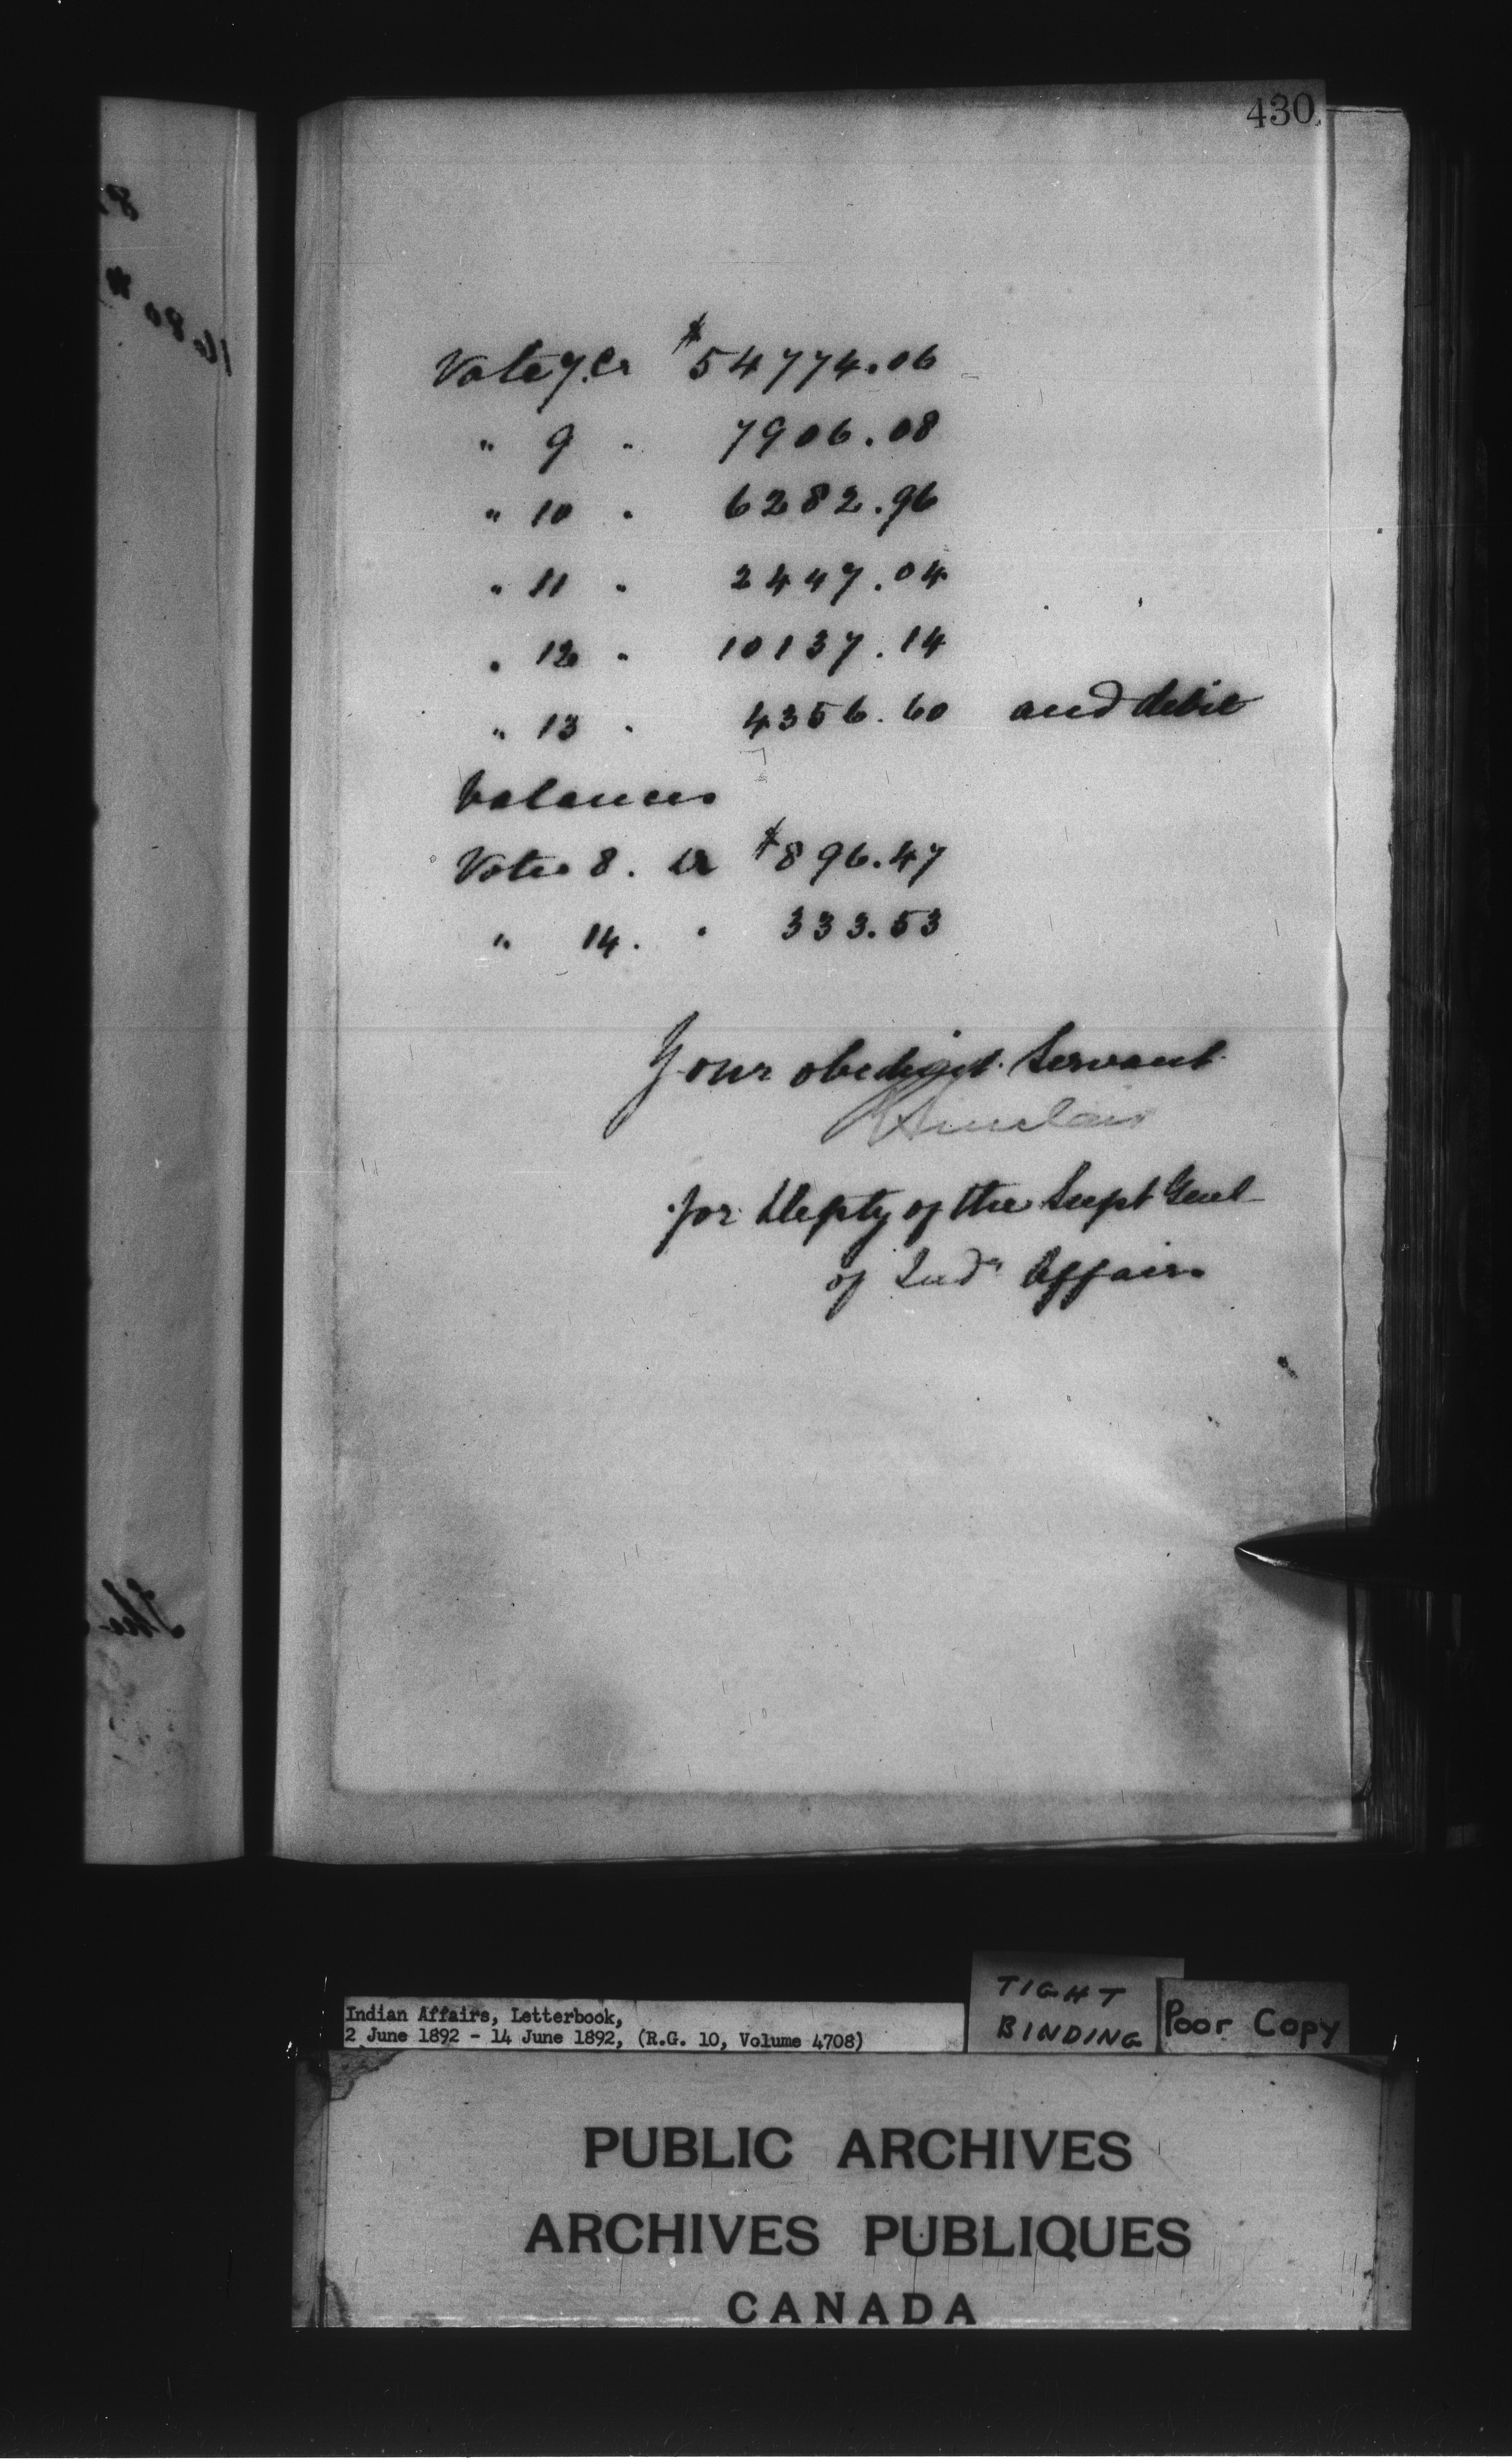 430.
Vote 7. Cr $54774.06
" 9 " 7906.08
" 10 " 6282.96
" 11 " 2447.04
" 12 " 10137.14
" 13 " 4356.60 and debit
balances
Votes 8. Dr $896.47
" 14. " 333.53
Your obedient Servant
Sinclair
for Depty of the Supt Genl
of Indn Affairs
Indian Affairs, Letterbook,
2 June 1892 - 14 June 1892, (R.G. 10, Volume 4708)
TIGHT
BINDING
Poor Copy
PUBLIC ARCHIVES
ARCHIVES PUBLIQUES
CANADA